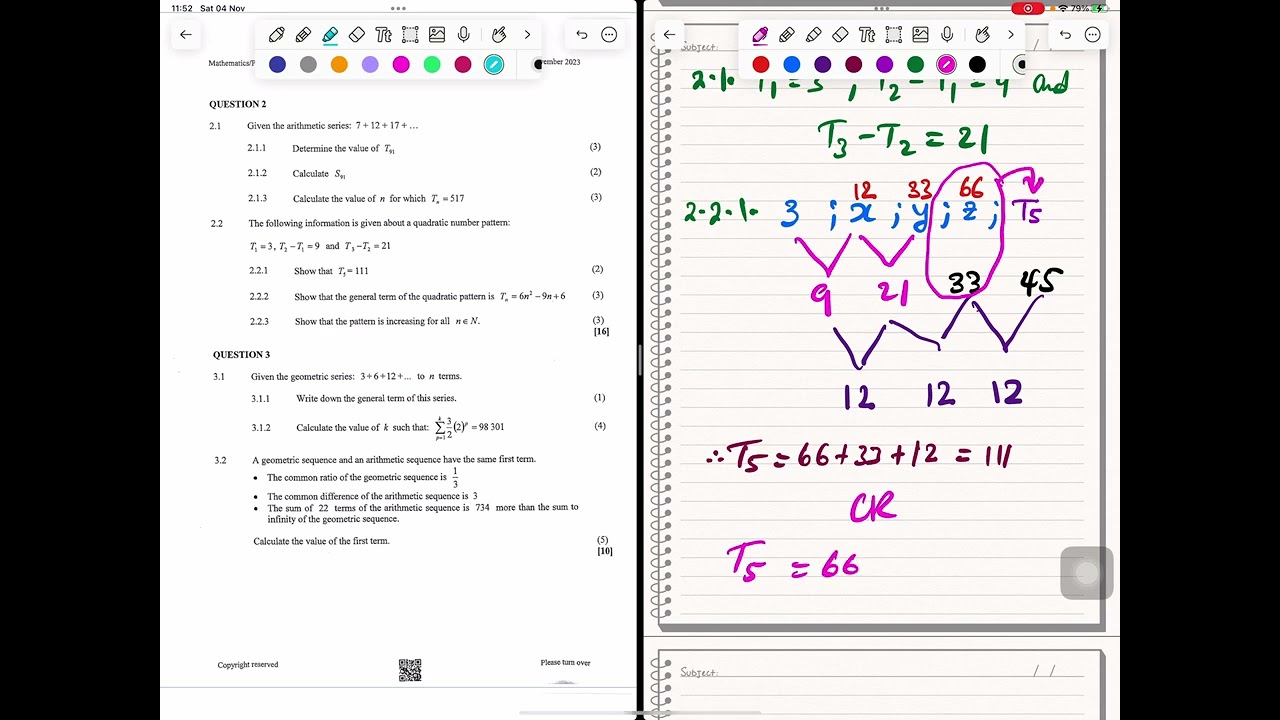 11:52 Sat 04 Nov
79%
Mathematics/P
vember 2023
QUESTION 2
2.1 Given the arithmetic series: 7 + 12 + 17 + ...
2.1.1 Determine the value of T₉₁ (3)
2.1.2 Calculate S₉₁ (2)
2.1.3 Calculate the value of n for which Tₙ = 517 (3)
2.2 The following information is given about a quadratic number pattern:
T₁ = 3, T₂ – T₁ = 9 and T₃ – T₂ = 21
2.2.1 Show that T₅ = 111 (2)
2.2.2 Show that the general term of the quadratic pattern is Tₙ = 6n² – 9n + 6 (3)
2.2.3 Show that the pattern is increasing for all n ∈ N. (3)
[16]
QUESTION 3
3.1 Given the geometric series: 3 + 6 + 12 + ... to n terms.
3.1.1 Write down the general term of this series. (1)
3.1.2 Calculate the value of k such that: ∑ᵏₚ₌₁ 3/2 (2)ᵖ = 98 301 (4)
3.2 A geometric sequence and an arithmetic sequence have the same first term.
• The common ratio of the geometric sequence is 1/3
• The common difference of the arithmetic sequence is 3
• The sum of 22 terms of the arithmetic sequence is 734 more than the sum to
infinity of the geometric sequence.
Calculate the value of the first term. (5)
[10]
Copyright reserved
Please turn over
Tt
Tt
Subject: / /
2.1. T₁ = 3 , T₂ – T₁ = 9 and
T₃ – T₂ = 21
12 33 66
2.2.1. 3 ; x ; y ; z ; T₅
9 21 33 45
12 12 12
∴ T₅ = 66 + 33 + 12 = 111
OR
T₅ = 66
Subject: / /